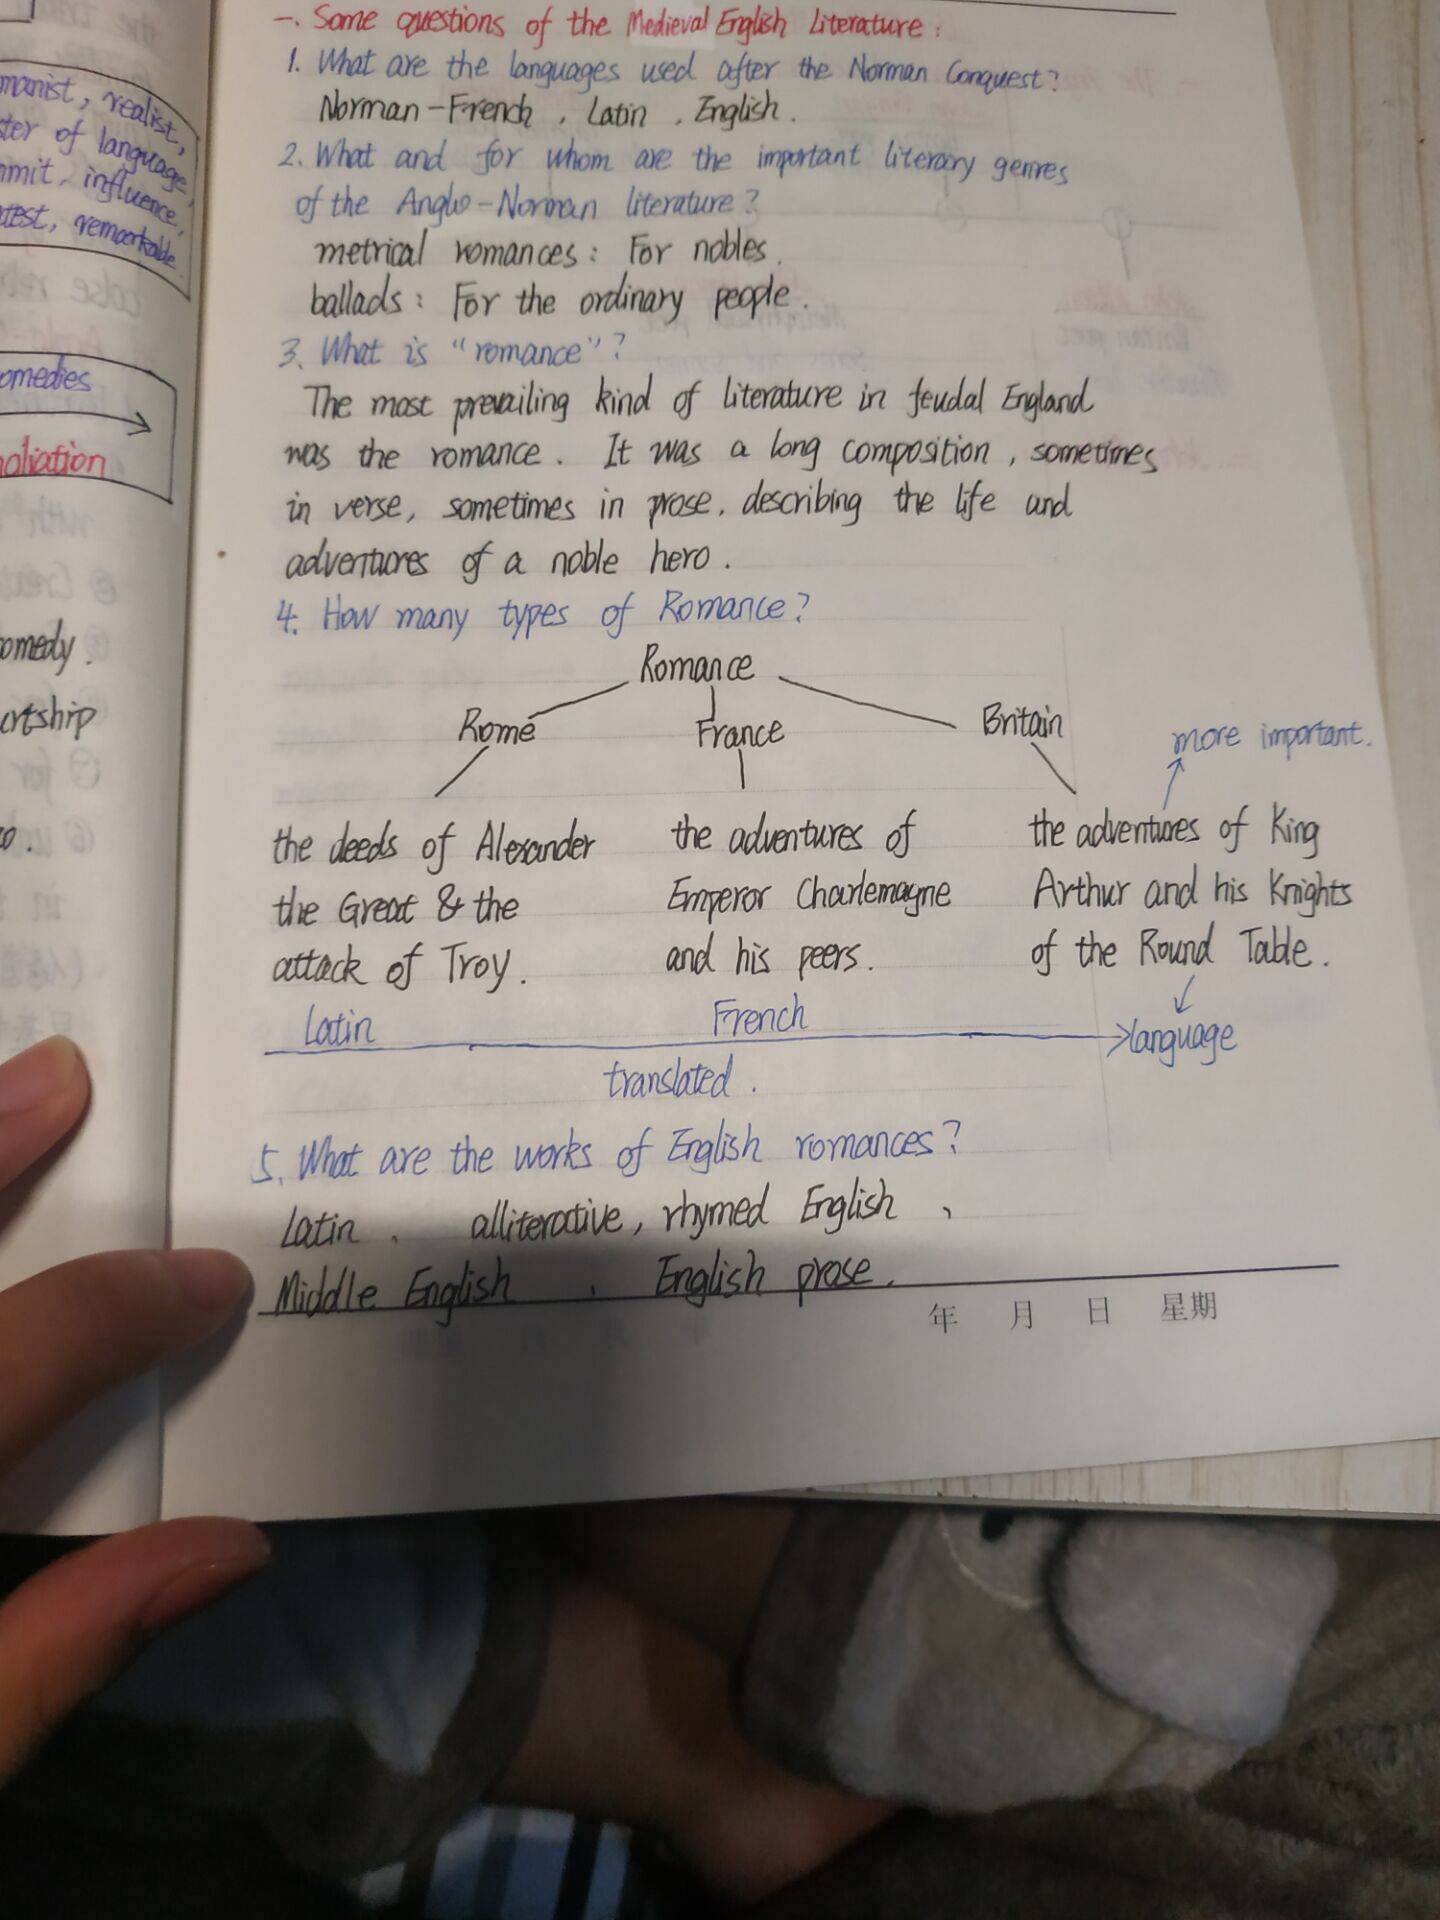 manist, realist,
ster of language,
mmit, influence,
atest, remarkable.
omedies
noliation
omedy.
ortship
一. Some questions of the Medieval English Literature:
1. What are the languages used after the Norman Conquest?
Norman-French, Latin, English.
2. What and for whom are the important literary genres
of the Anglo-Norman literature?
metrical romances: For nobles.
ballads: For the ordinary people.
3. What is "romance"?
The most prevailing kind of literature in feudal England
was the romance. It was a long composition, sometimes
in verse, sometimes in prose, describing the life and
adventures of a noble hero.
4. How many types of Romance?
Romance
Rome France Britain
more important.
the deeds of Alexander
the Great & the
attack of Troy.
the adventures of
Emperor Charlemagne
and his peers.
the adventures of King
Arthur and his Knights
of the Round Table.
Latin French language
translated.
5. What are the works of English romances?
Latin、 alliterative, rhymed English、
Middle English、 English prose.
年 月 日 星期